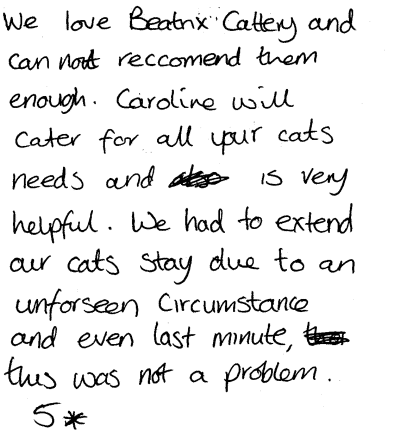 We love Beatrix Cattery and
can not reccomend them
enough. Caroline will
Cater for all your cats
needs and is very
helpful. We had to extend
our cats stay due to an
unforseen Circumstance
and even last minute,
this was not a problem.
5*